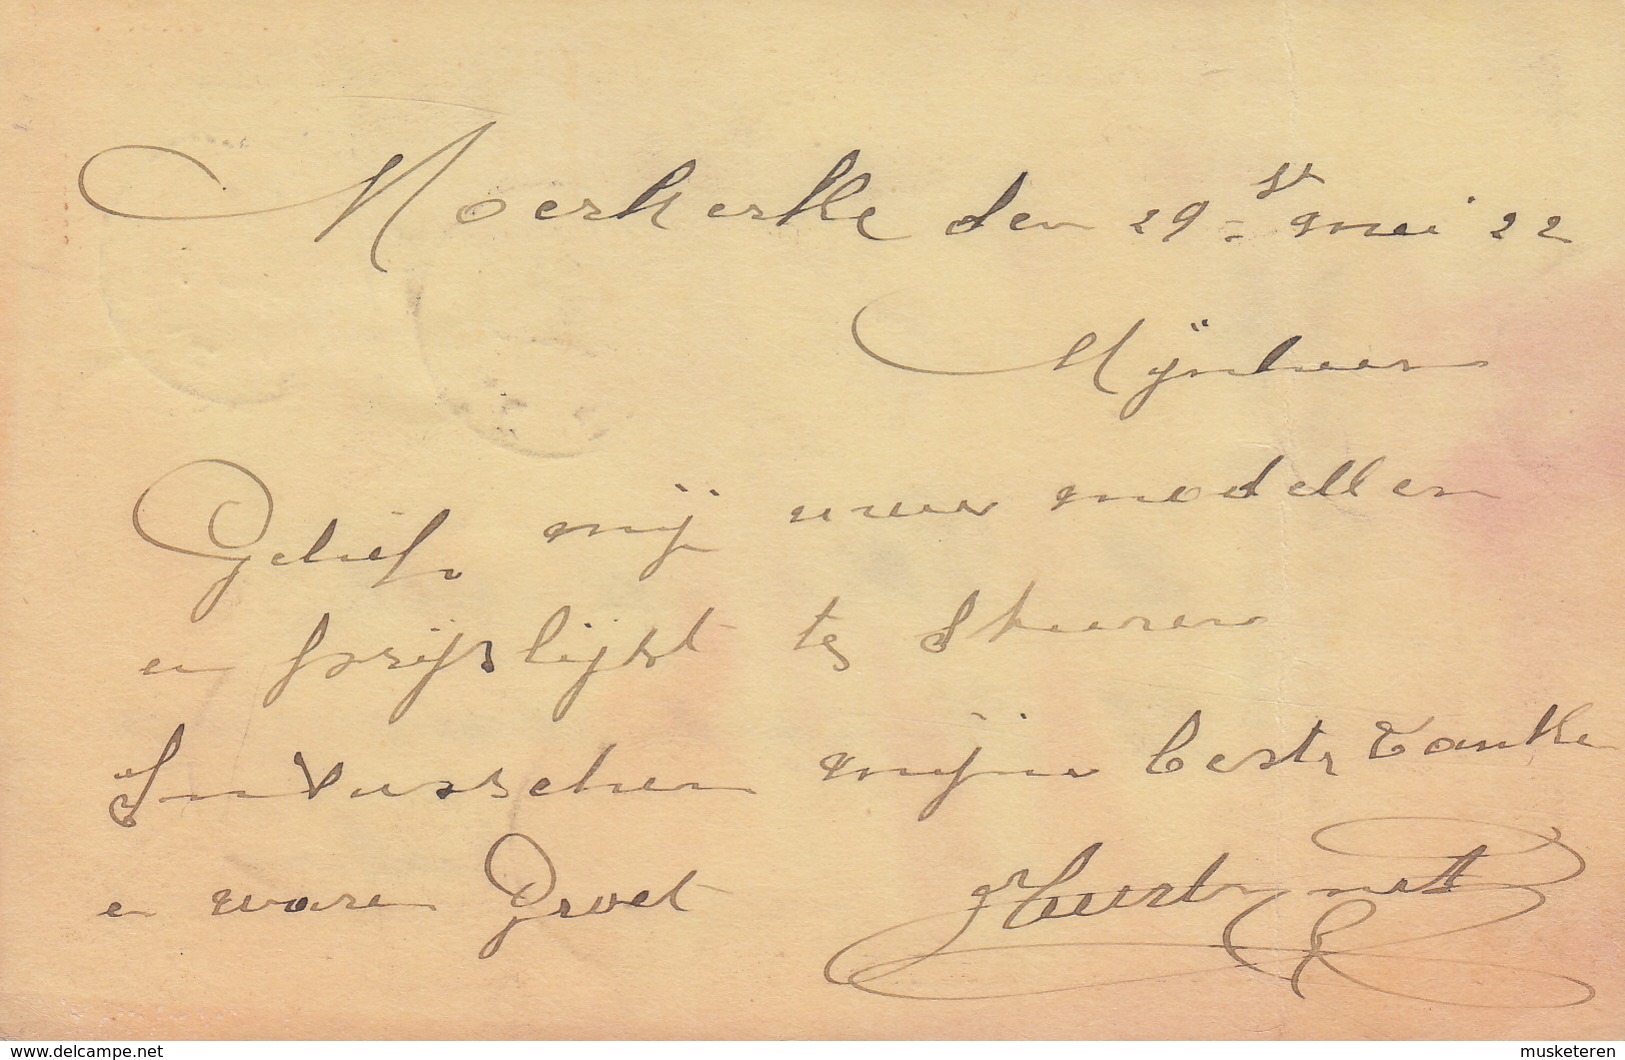 Moerkerke den 29 st mei 22
Mijnheer
Gelief mij uwe modellen
en prijslijst te stuuren
Intusschen mijne beste danke
en waren Groet
www.delcampe.net
musketeren